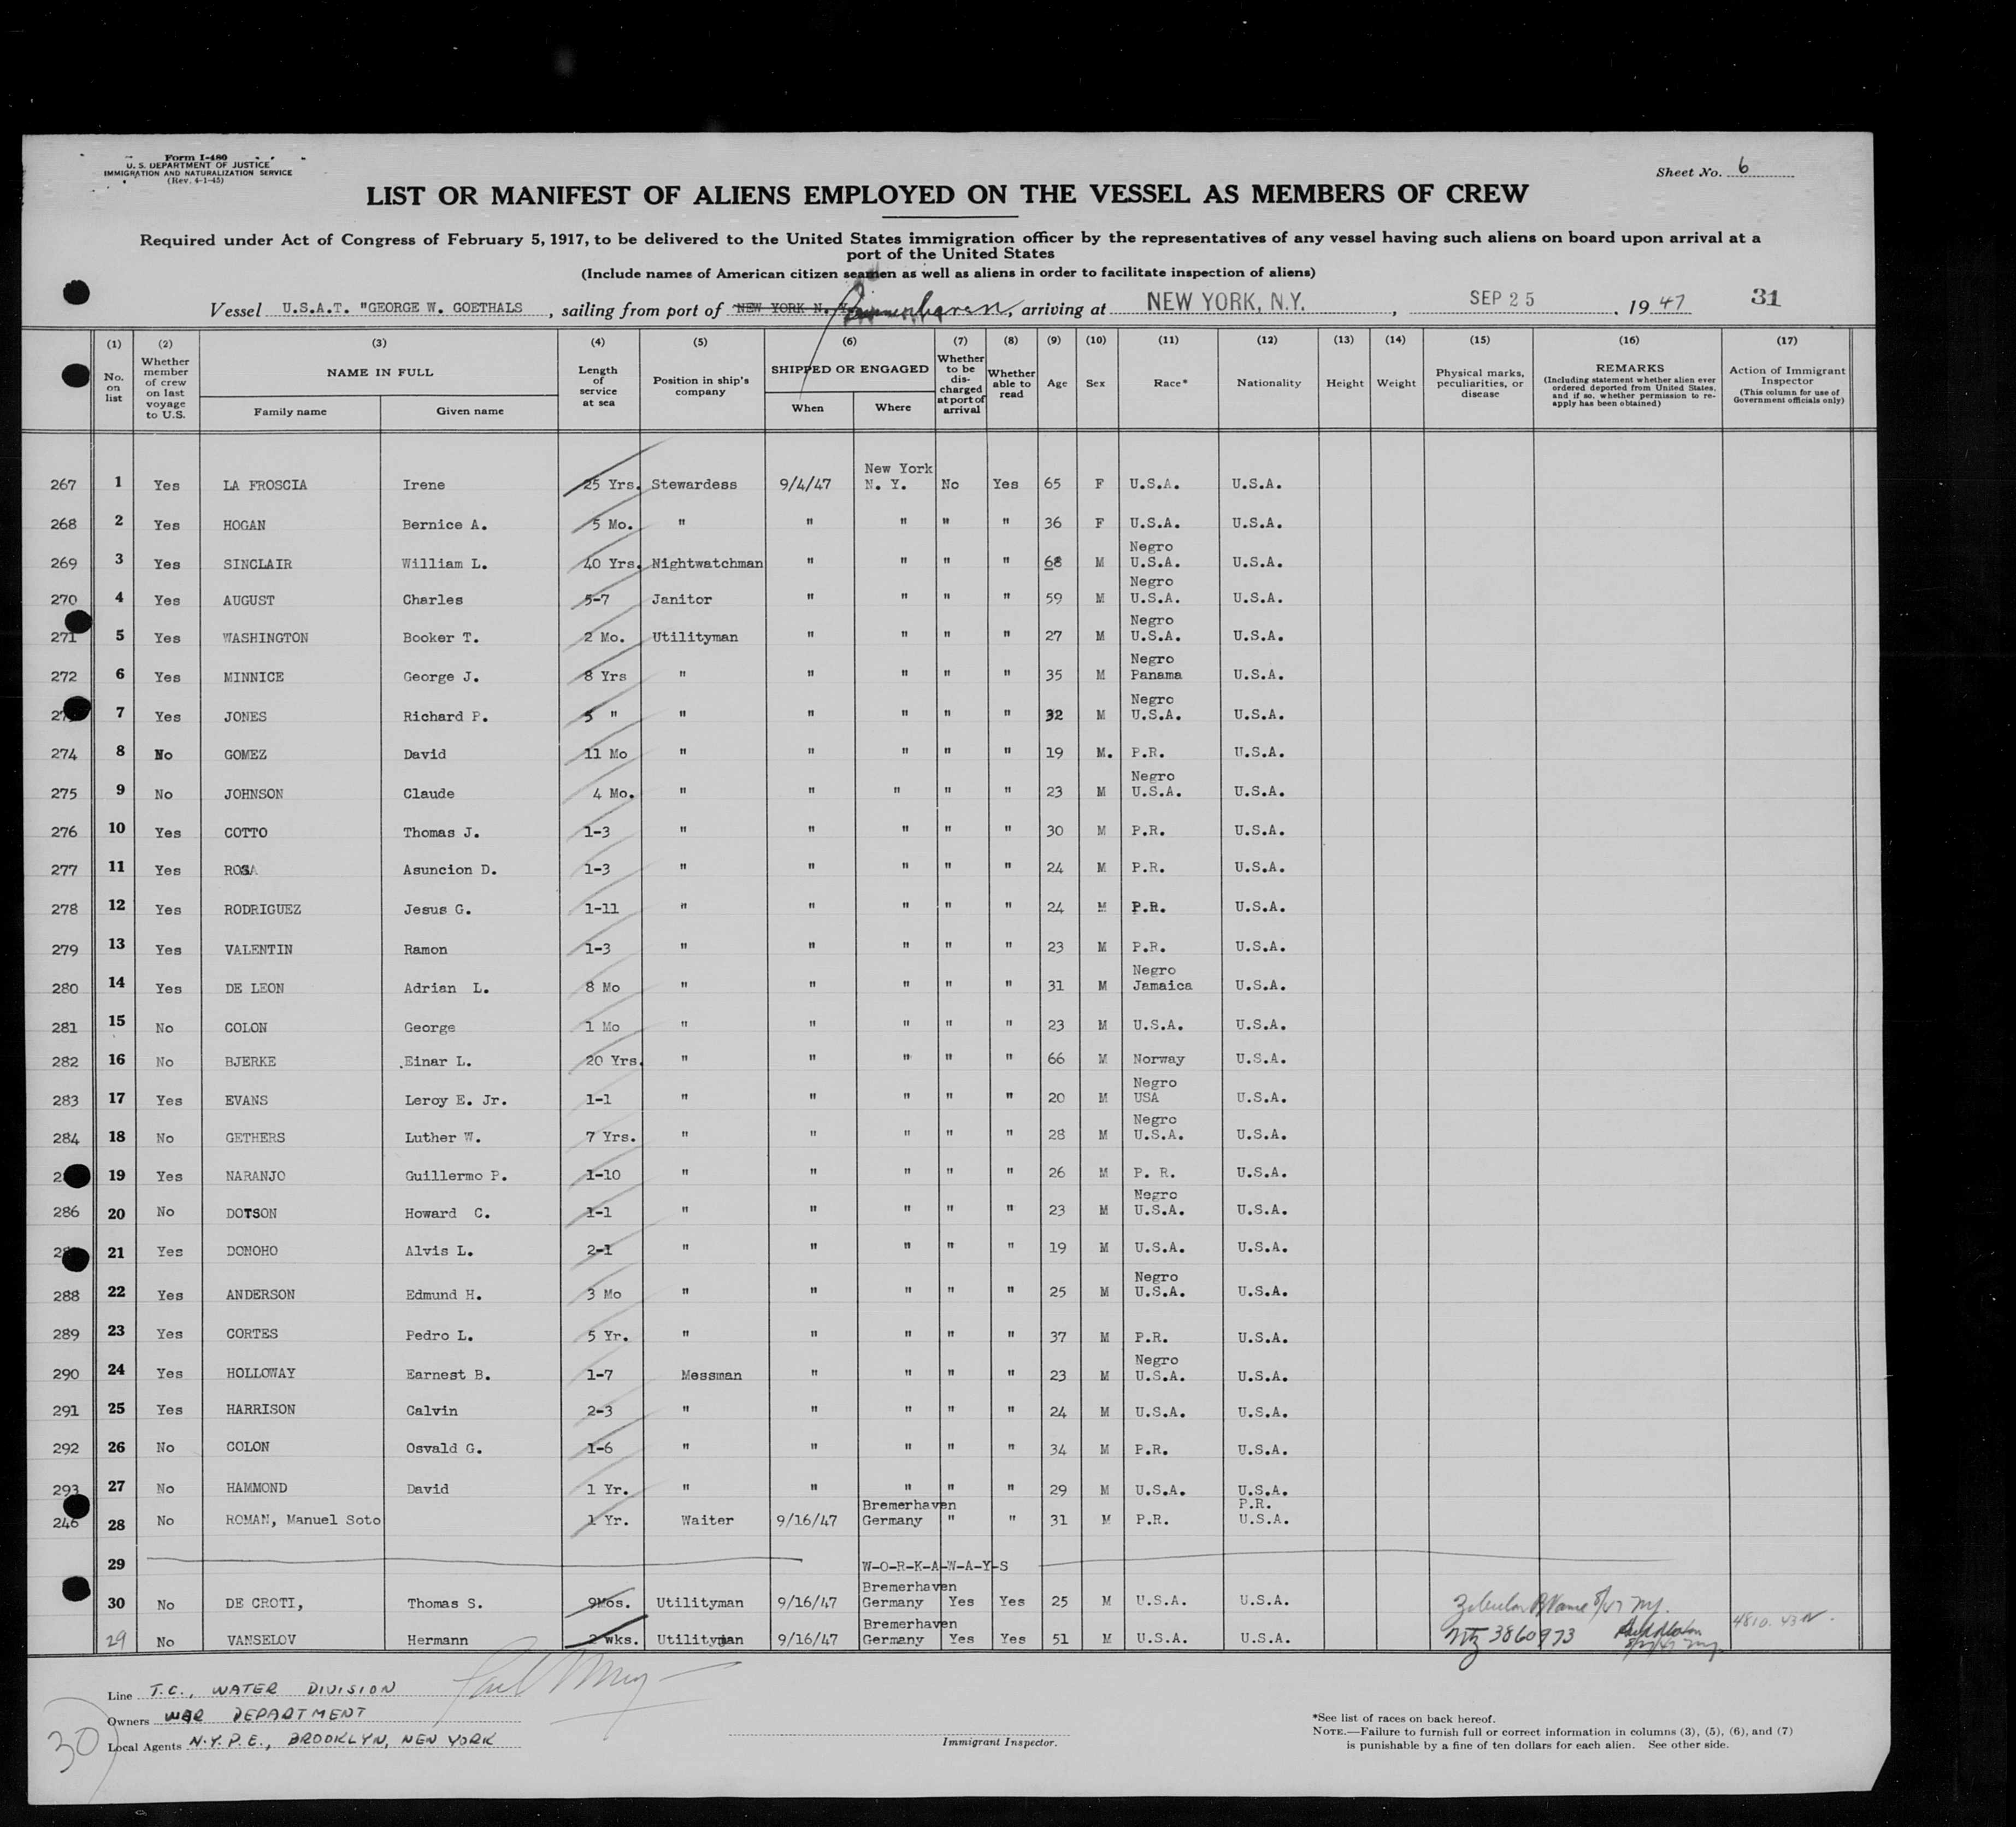 Form I-480
U. S. DEPARTMENT OF JUSTICE
IMMIGRATION AND NATURALIZATION SERVICE
(Rev. 4-1-45)
Sheet No. 6
LIST OR MANIFEST OF ALIENS EMPLOYED ON THE VESSEL AS MEMBERS OF CREW
Required under Act of Congress of February 5, 1917, to be delivered to the United States immigration officer by the representatives of any vessel having such aliens on board upon arrival at a
port of the United States
(Include names of American citizen seamen as well as aliens in order to facilitate inspection of aliens)
Vessel U.S.A.T. "GEORGE W. GOETHALS, sailing from port of NEW YORK N. Y. Bremerhaven, arriving at NEW YORK, N.Y., SEP 25, 1947 31
(1) No. on list (2) Whether member of crew on last voyage to U.S. (3) NAME IN FULL Family name Given name (4) Length of service at sea (5) Position in ship's company (6) SHIPPED OR ENGAGED When Where (7) Whether to be discharged at port of arrival (8) Whether able to read (9) Age (10) Sex (11) Race* (12) Nationality (13) Height (14) Weight (15) Physical marks, peculiarities, or disease (16) REMARKS (Including statement whether alien ever ordered deported from United States, and if so, whether permission to reapply has been obtained) (17) Action of Immigrant Inspector (This column for use of Government officials only)
267 1 Yes LA FROSCIA Irene 25 Yrs. Stewardess 9/4/47 New York N. Y. No Yes 65 F U.S.A. U.S.A.
268 2 Yes HOGAN Bernice A. 5 Mo. " " " " " 36 F U.S.A. U.S.A.
269 3 Yes SINCLAIR William L. 40 Yrs. Nightwatchman " " " " 68 M Negro U.S.A. U.S.A.
270 4 Yes AUGUST Charles 5-7 Janitor " " " " 59 M Negro U.S.A. U.S.A.
271 5 Yes WASHINGTON Booker T. 2 Mo. Utilityman " " " " 27 M Negro U.S.A. U.S.A.
272 6 Yes MINNICE George J. 8 Yrs " " " " " 35 M Negro Panama U.S.A.
27 7 Yes JONES Richard P. 5 " " " " " " 32 M Negro U.S.A. U.S.A.
274 8 No GOMEZ David 11 Mo " " " " " 19 M. P.R. U.S.A.
275 9 No JOHNSON Claude 4 Mo. " " " " " 23 M Negro U.S.A. U.S.A.
276 10 Yes COTTO Thomas J. 1-3 " " " " " 30 M P.R. U.S.A.
277 11 Yes ROSA Asuncion D. 1-3 " " " " " 24 M P.R. U.S.A.
278 12 Yes RODRIGUEZ Jesus G. 1-11 " " " " " 24 M P.R. U.S.A.
279 13 Yes VALENTIN Ramon 1-3 " " " " " 23 M P.R. U.S.A.
280 14 Yes DE LEON Adrian L. 8 Mo " " " " " 31 M Negro Jamaica U.S.A.
281 15 No COLON George 1 Mo " " " " " 23 M U.S.A. U.S.A.
282 16 No BJERKE Einar L. 20 Yrs. " " " " " 66 M Norway U.S.A.
283 17 Yes EVANS Leroy E. Jr. 1-1 " " " " " 20 M Negro USA U.S.A.
284 18 No GETHERS Luther W. 7 Yrs. " " " " " 28 M Negro U.S.A. U.S.A.
2 19 Yes NARANJO Guillermo P. 1-10 " " " " " 26 M P. R. U.S.A.
286 20 No DOTSON Howard C. 1-1 " " " " " 23 M Negro U.S.A. U.S.A.
28 21 Yes DONOHO Alvis L. 2-1 " " " " " 19 M U.S.A. U.S.A.
288 22 Yes ANDERSON Edmund H. 3 Mo " " " " " 25 M Negro U.S.A. U.S.A.
289 23 Yes CORTES Pedro L. 5 Yr. " " " " " 37 M P.R. U.S.A.
290 24 Yes HOLLOWAY Earnest B. 1-7 Messman " " " " 23 M Negro U.S.A. U.S.A.
291 25 Yes HARRISON Calvin 2-3 " " " " " 24 M U.S.A. U.S.A.
292 26 No COLON Osvald G. 1-6 " " " " " 34 M P.R. U.S.A.
293 27 No HAMMOND David 1 Yr. " " " " " 29 M U.S.A. U.S.A.
246 28 No ROMAN, Manuel Soto 1 Yr. Waiter 9/16/47 Bremerhaven Germany " " 31 M P.R. P.R. U.S.A.
29 W-O-R-K-A-W-A-Y-S
30 No DE CROTI, Thomas S. 9Mos. Utilityman 9/16/47 Bremerhaven Germany Yes Yes 25 M U.S.A. U.S.A.
29 No VANSELOV Hermann 2 wks. Utilityman 9/16/47 Bremerhaven Germany Yes Yes 51 M U.S.A. U.S.A. 3860973
Line T.C., WATER DIVISION
Owners WAR DEPARTMENT
Local Agents N.Y.P.E., BROOKLYN, NEW YORK
30
Immigrant Inspector.
*See list of races on back hereof.
NOTE.—Failure to furnish full or correct information in columns (3), (5), (6), and (7)
is punishable by a fine of ten dollars for each alien. See other side.